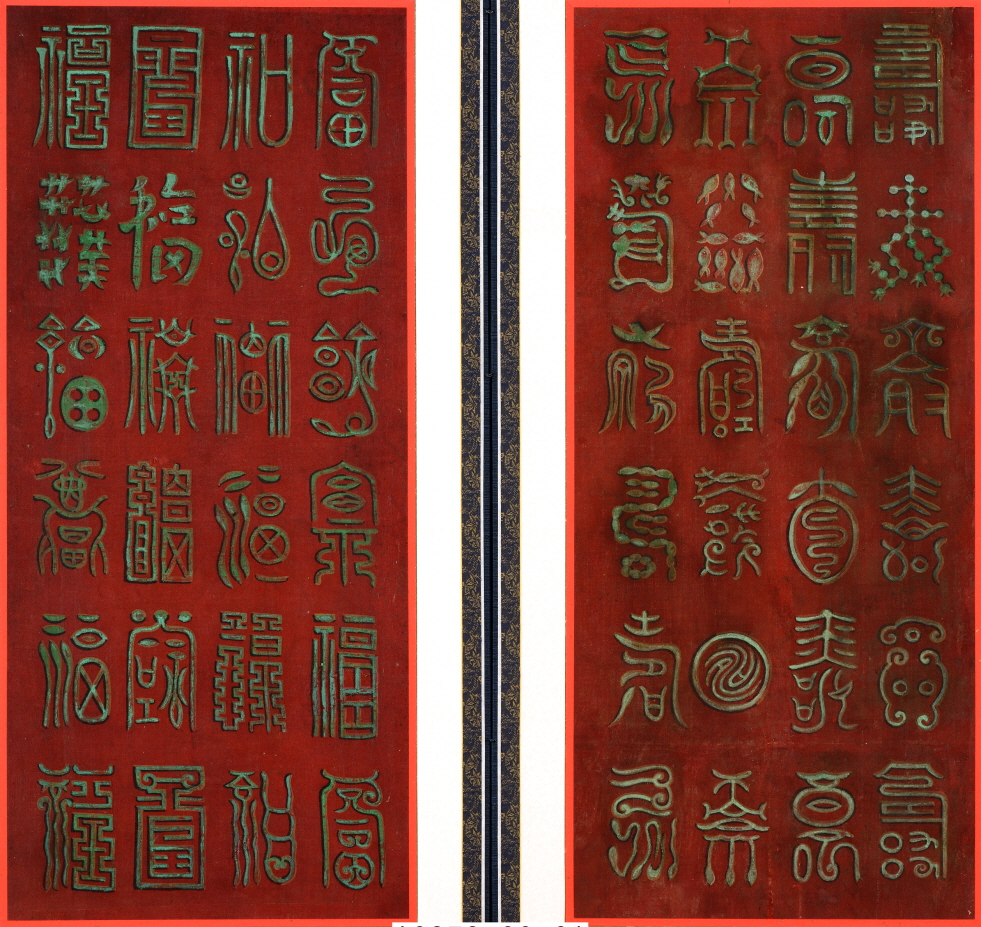 壽壽壽壽壽壽
壽壽壽壽壽壽
壽壽壽壽壽壽
壽壽壽壽壽壽
福福福福福福
福福福福福福
福福福福福福
福福福福福福